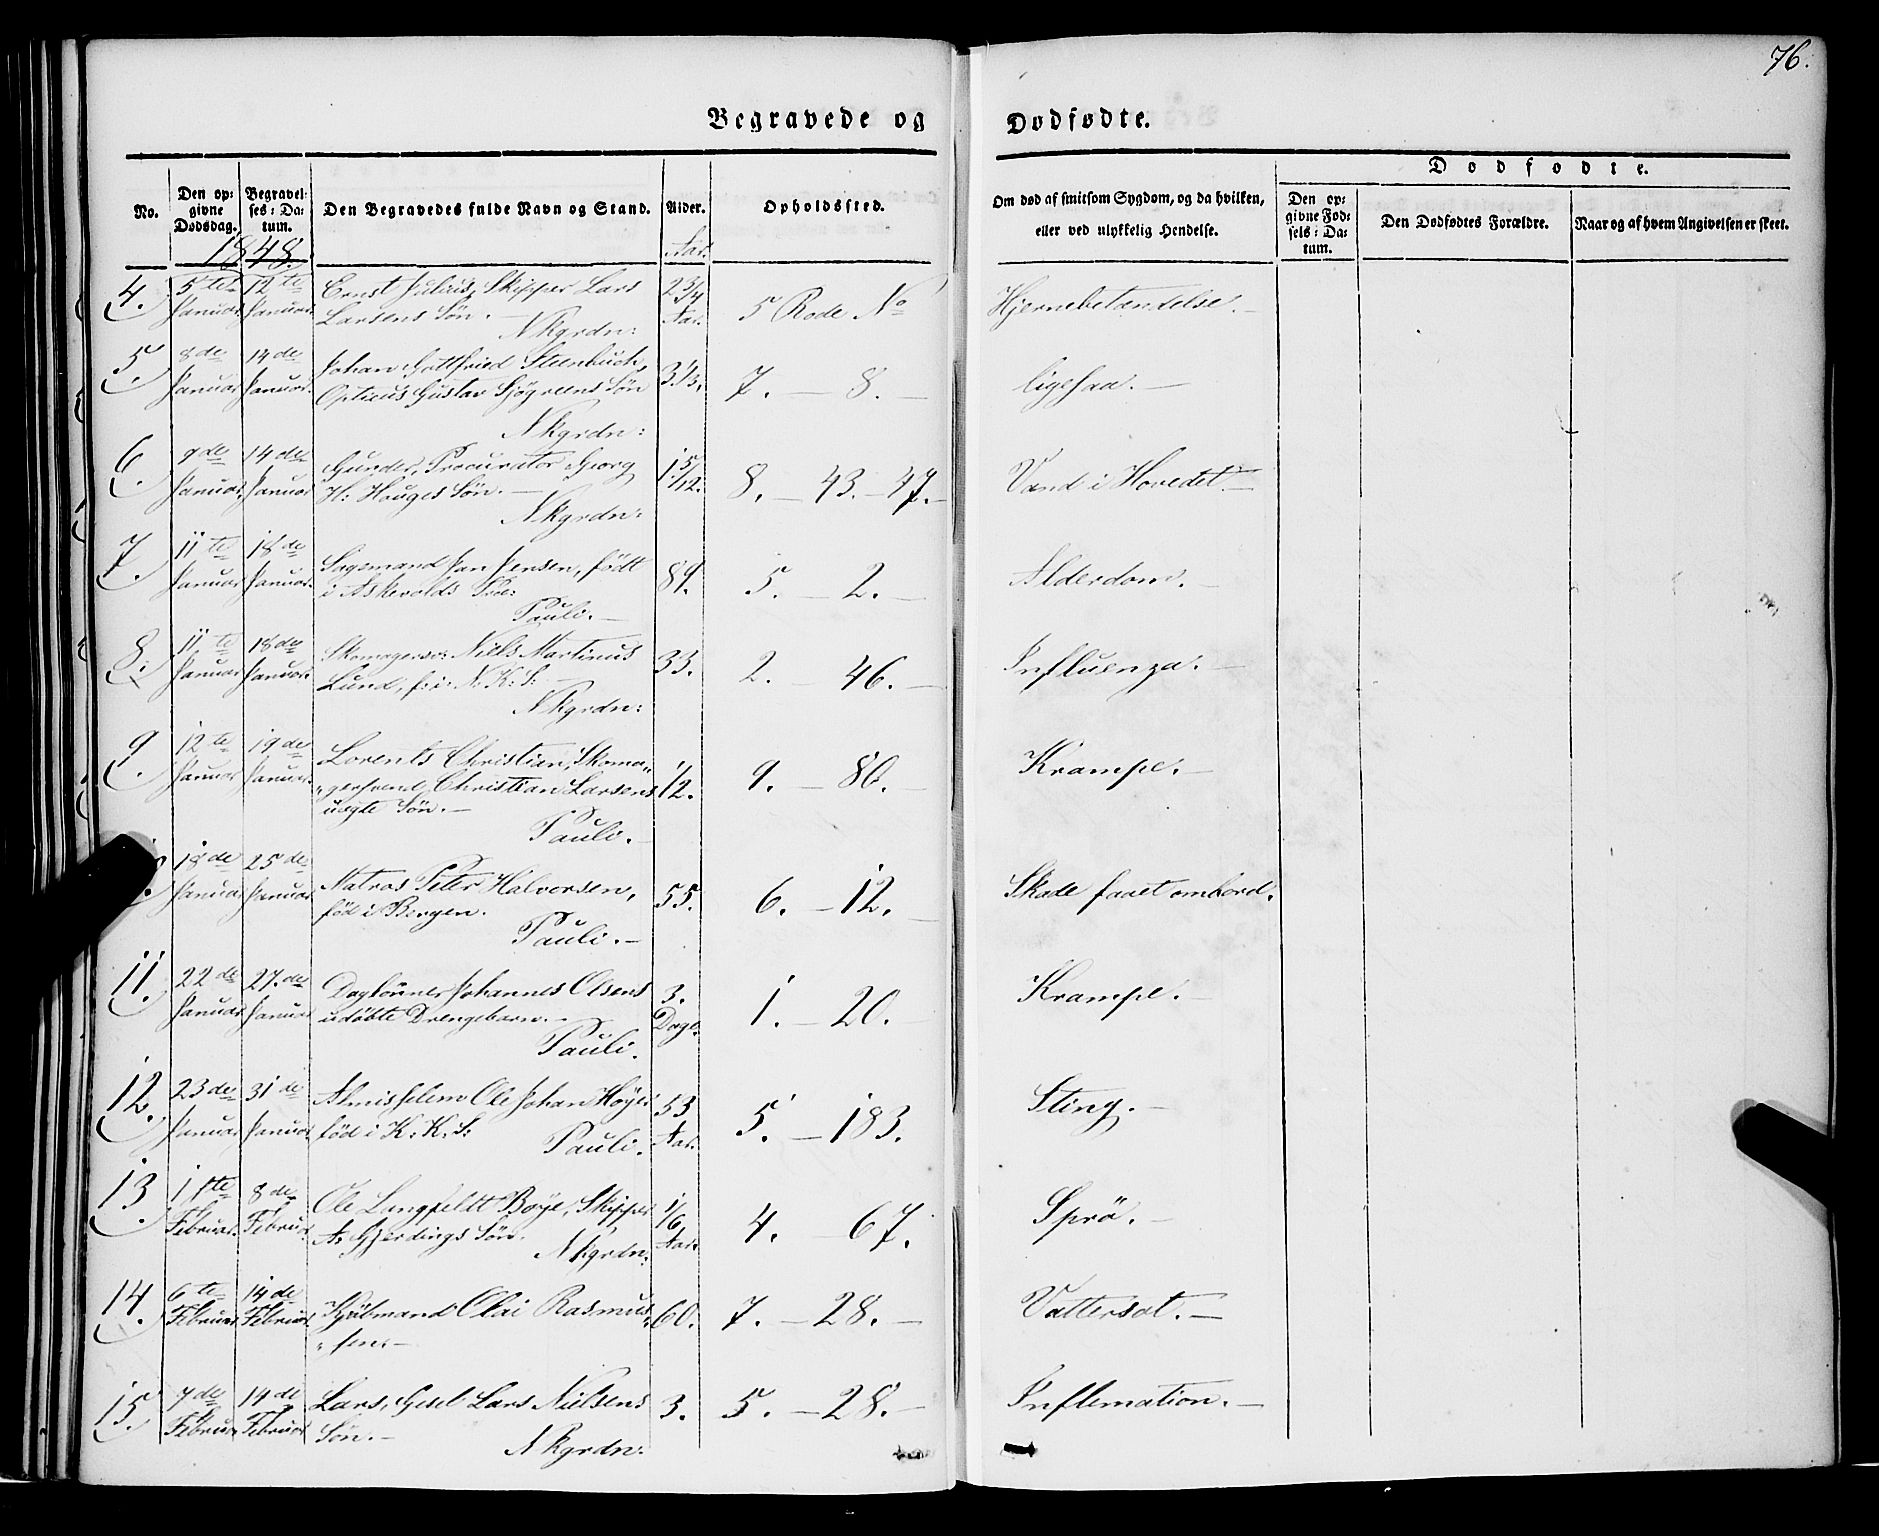 76.
Begravede og Dødfødte.
No.
Den opgivne Dødsdag.
Begravelses-Datum.
Den Begravedes fulde Navn og Stand.
Alder.
Opholdssted.
Om død af smitsom Sygdom, og da hvilken, eller ved ulykkelig Hendelse.
Dødfødte.
Den opgivne Fødsels-Datum.
Den Dødfødtes Forældre.
Naar og af hvem Angivelsen er skeet.
1848.
Aar.
4. 5te Januar 12te Januar Ernst Julius, Skipper Lars 2 3/4 Aar. 5 Rode No Hjernebetændelse.
Larsens Søn.
Nkgrdn:
5. 8de Januar 14de Januar. Johan Gottfried Steenbuch, 3 1/3. 7. — 8. — ligesaa. —
Opticus Gustav Sjøgreens Søn
Nkgrdn:
6. 9de Januar. 14de Januar Gunder, Procurator Georg 1 5/12. 8. — 43. — 47. — Vand i Hovedet. —
H: Hauges Søn. —
Nkgrdn:
7. 11te Januar 18de Januar. Sagemand Jan Jensen, født 89. 5. — 2. — Alderdom. —
i Askevolds Pr:
Pauli. —
8. 11te Januar 18de Januar. Skomagersv: Niels Martinus 33. 2. — 46. — Influenza. —
Lund, f: i: N. K: S: —
Nkgrdn:
9. 12te Januar 19de Januar. Lorents Christian, Skoma„ 1/2. 9. — 80. — Krampe. —
„gersvend Christian Larsens
uægte Søn. —
Pauli. —
18de Januar 25de Januar Matros Peter Halvorsen, 55. 6. — 12. — Skade faaet ombord.
fød i Bergen.
Pauli. —
11. 22de Januar 27de Januar Daglønner Johannes Olsens 3. Dage. 1. — 20. — Krampe. —
udøbte Drengebarn. —
Pauli.
12. 23de Januar 31de Januar Almisselem Ole Johan Høyer 53 Aar. 5. — 183. Sting. —
fød i K: K. S:
Pauli.
13. 1ste Februar. 8de Februar. Ole Langfeldt Boye, Skipper 1/6 Aar. 4. — 67. Sprø. —
A. Gjerdings Søn.
Nkgrdn:
14. 6te Februar 14de Februar Kjøbmand Olai Rasmus„ 60. 7. — 28. — Vattersot. —
„sen. —
15. 7de Februar 14de Februar Lars, Gesel Lars Nielsens 3. 5. — 28. — Inflemation. —
Søn. —
Nkgrdn: